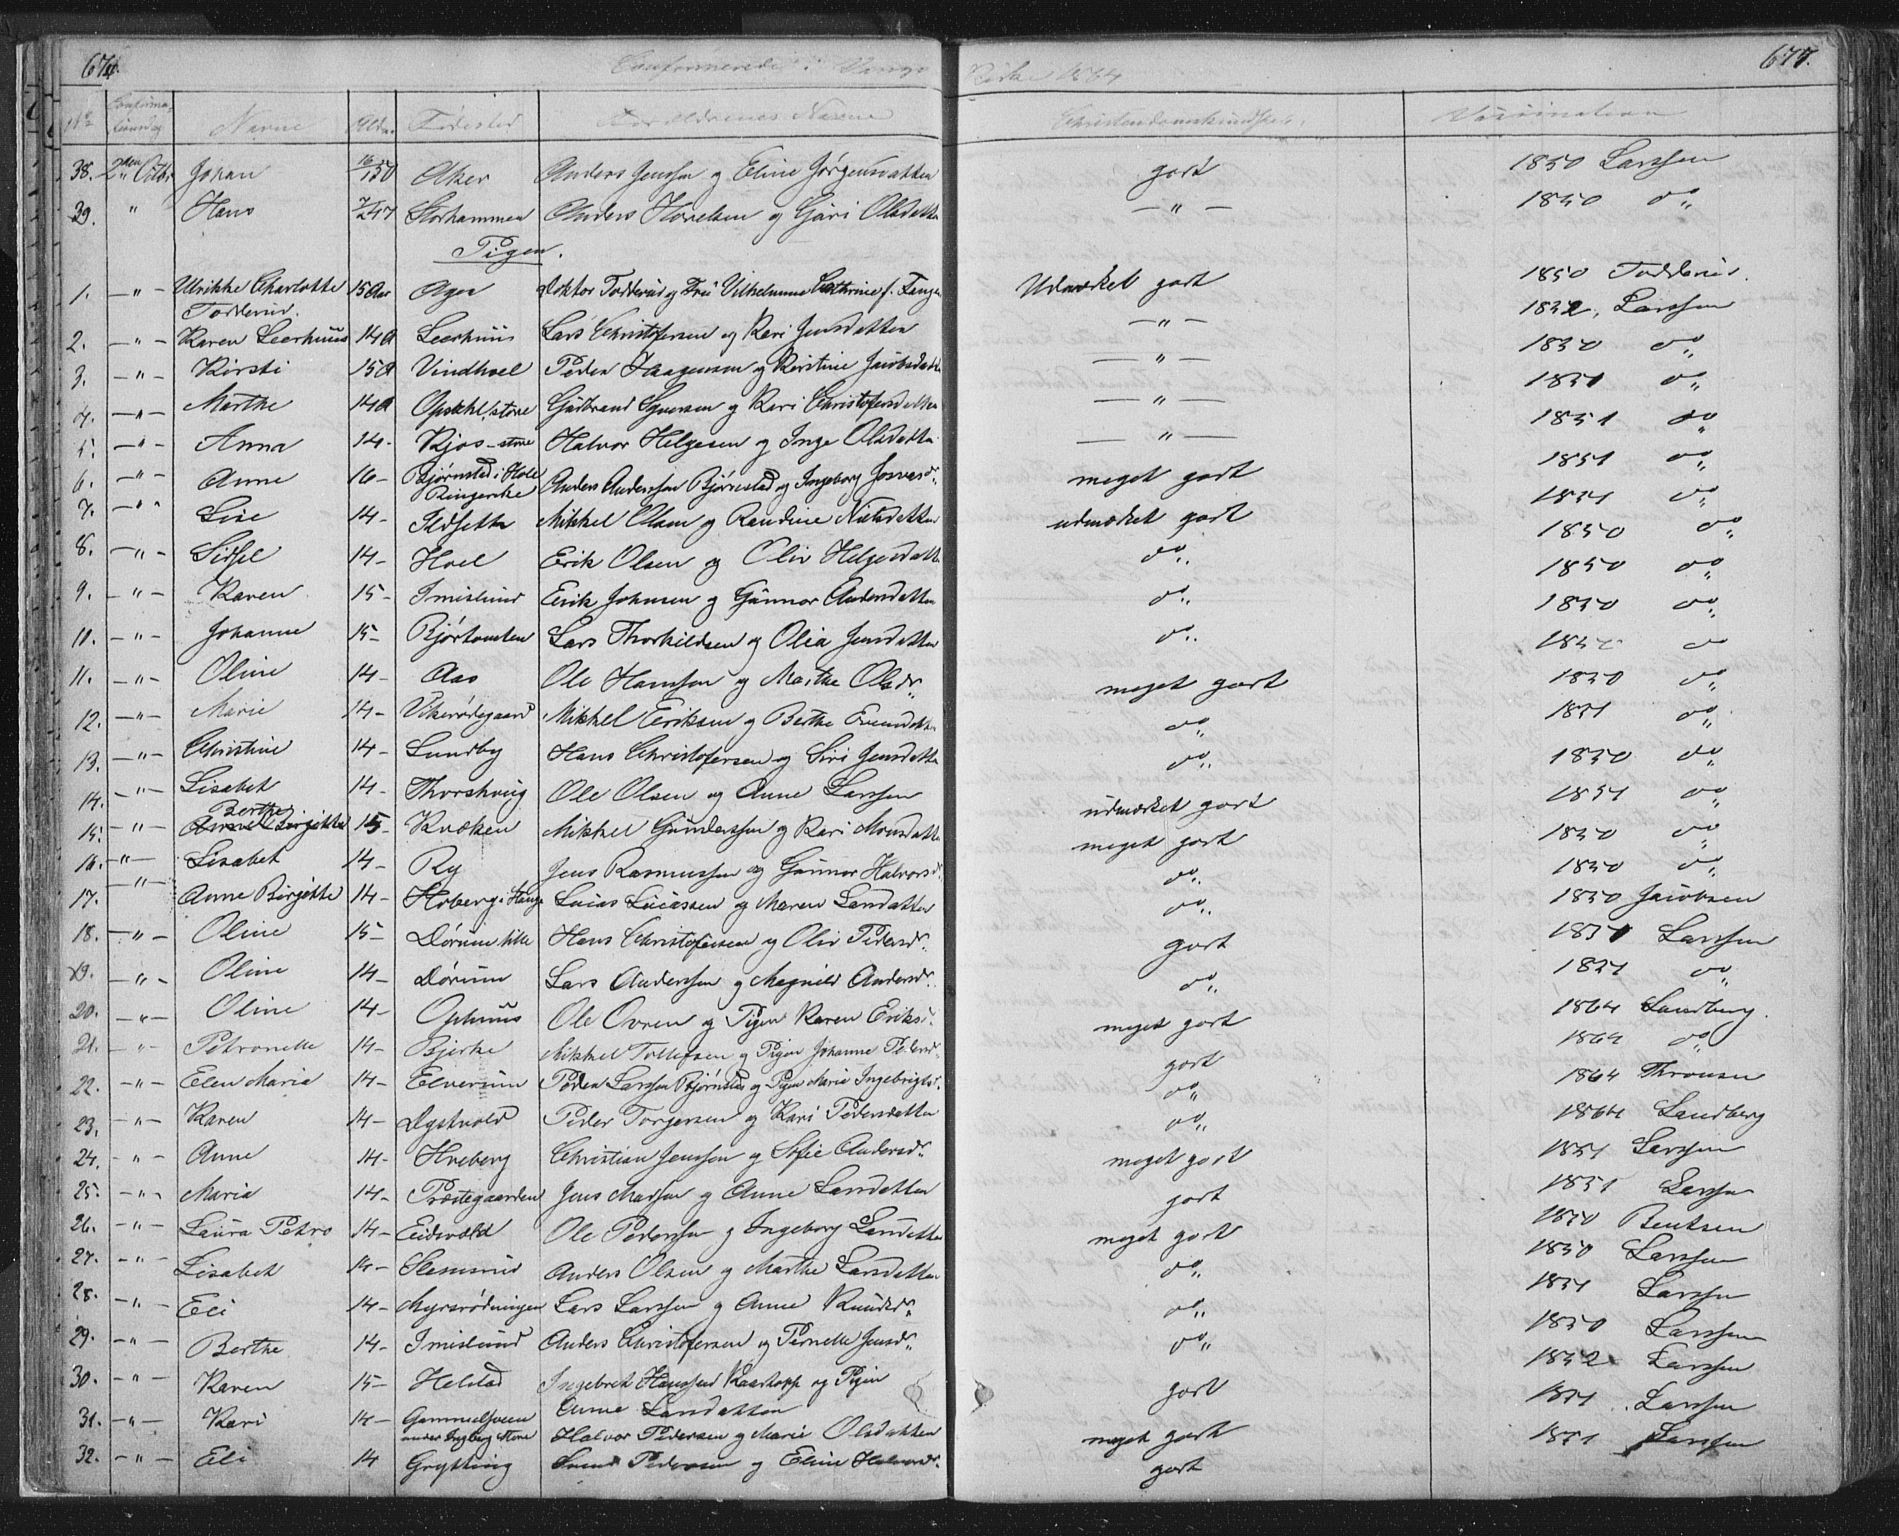 676. Confirmerede i Vangs Kirke 1864 677.
No Confirmationsdag Navne Alder Fødested Forældrenes Navne Christendomskundskab Vaccination
38. 2den Octbr Johan 16/1 50 Aker Anders Jenssen og Eline Jørgensdatter godt 1850 Larssen
39. " Hans Storhammer Anders og Gúri Olsdatter — " — 1850 do
Piger.
1. — " — Ulrikke Charlotte 15 Aar Ager Doktor Todderud og Frú Vilhelmine Cathrine f. Fangen Udmærket godt 1850 Todderud.
Todderud.
2. — " — Karen Leerhuus 14 A Leerhuus Lars Christofersen og Kari Jensdatter — " — 1852, Larssen
3. — " — Kirsti 15 A Vindhoel Peder Haagensen og Kirstine Jacobsdatter — " — 1850 do
4. — " — Marthe 14 A Opsahl, store Gúlbrand Syversen og Kari Christofersdatter — " — 1851 do
5. — " — Anna 14 - Kjos - store Halvor Helgesen og Inge Olsdatter — " — 1851 do
6. — " — Anne 16 - Bjørnstad i Hole Ringerike Anders Anderssen Bjørnstad og Ingeborg meget godt 1851 do
7. — " — Lise 14 - Ildsetter Mikkel Olsen og Randine Nielsdatter udmærket godt 1851 do
8. — " — Sissel 14 - Hoel Erik Olsen og Oliv Helgesdatter do 1850 do
9. — " — Karen 15 - Imislund Erik Johnsen og Gúnnor Andersdatter do 1850 do
10. — " — Johanne 15 - Bjørtomten Lars Thorkildsen og Olia Jensdatter do 1850 do
11. — " — Oline 14 - Aas Ole Hanssen og Marthe Olsdr. meget godt 1852 do
12. — " — Marie 14 - Vikerødegaard Mikkel Eriksen og Berthe Evensdatter do 1850 do
13. — " — Christine 14 - Lundby Hans Christofersen og Siri Jensdatter do 1851 do
14. — " — Lisabet 14 - Thorshoug Ole Olsen og Anne Larssen udmærket godt 1850 do
15. — " — Berthe Birgitte 15 - Knæken Mikkel Gúnderssen og Kari Monsdatter meget godt 1851 do
16. — " — Lisabet 14 - Ry Jens Rasmussen og Gúnnor Halvorsd. do 1850 do
17. — " — Anne Birgitte 14 - Hoberg i Stange Lúcas Lúcassen og Maren Larsdatter do 1850 Jacobsen
18. — " — Oline 15 - Dørum lille Hans Christofersen og Oliv Pedersdr. godt 1851 Larssen
19. — " — Oline 14 - Dørum Lars Anderssen og Magnild Andersdr. do 1851 do
20. — " — Oline 14 - Ophuus Ole Ovren og Pigen Karen Eriksd. meget godt 1864 Sandberg.
21. — " — Petronelle 14 - Bjerke Mikkel Tollefsen og Pigen Johanne Pedersd. godt 1864 do
22. — " — Elen Maria 14 - Elverum Peder Larssen Bjørnstad og Pigen Marie Ingebrigtsd. do 1864 Thronsen
23. — " — Karen 14 - Dystvold Peder Torgersen og Kari Pedersdatter do 1864 Sandberg
24. — " — Anne 14 - Hveberg Christian Jenssen og Sofie Andersdr. meget godt 1851 Larssen
25. — " — Maria 14 - Præstegaarden Jens Madsen og Anne Larsdatter godt 1851 Larssen
26. — " — Laura Petro 14 - Eidsvold Ole Pederssen og Ingeborg Larsdatter meget godt 1850 Bentsen
27. — " — Lisabet 14 - Slemsrud Anders Olsen og Marthe Larsdatter do 1850 Larssen
28. — " — Eli 14 - Myrsrødningen Lars Larssen og Anne Knudsdr. do 1851 Larssen
29. — " — Berthe 14 - Imislund Anders Christofersen og Pernelle Jensdr. do 1850 Larssen
30. — " — Karen 15 - Helstad Ingebret Hanssen Kaarstopp og Pigen Anne Larsdatter godt 1852 Larssen
31. — " — Kari 14 - Gammelsveen under Ingberg store Halvor Pedersen og Marie Olsdatter meget godt 1851 Larssen
32. — " — Eli 14 Grytting Svend Pedersen og Eline Halvorsdr. godt 1851 Larssen